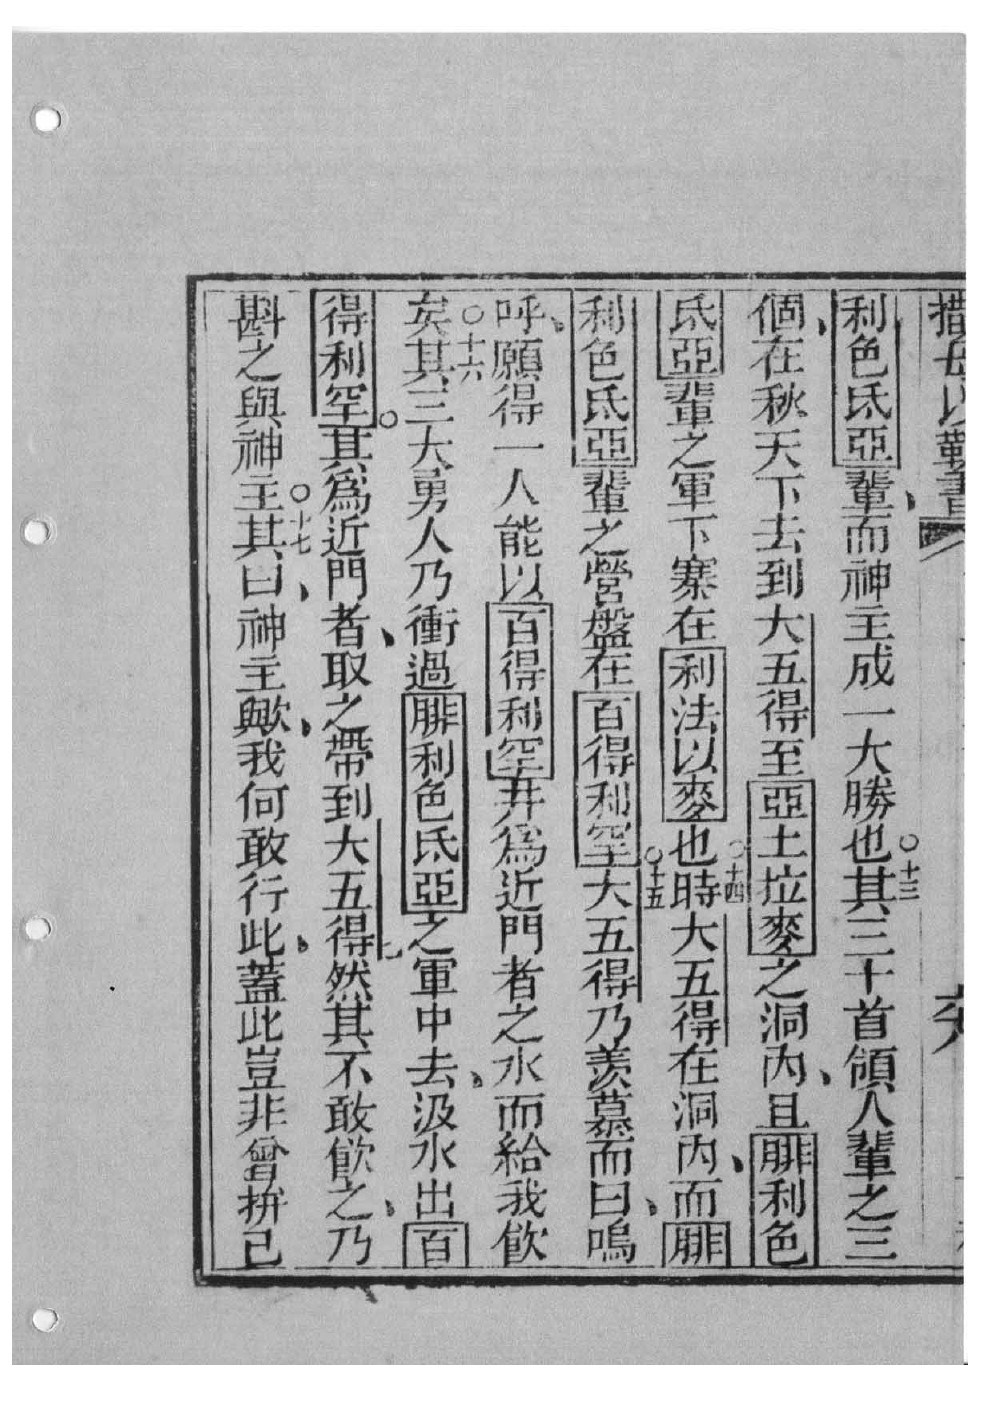 撒母以勒書
利色氐亞輩而神主成一大勝也○十三其三十首領人輩之三
個在秋天下去到大五得至亞土拉麥之洞內且腓利色
氐亞輩之軍下寨在利法以麥也○十四時大五得在洞內而腓
利色氐亞輩之營盤在百得利罕○十五大五得乃羨慕而曰嗚
呼願得一人能以百得利罕井為近門者之水而給我飲
矣○十六其三大勇人乃衝過腓利色氐亞之軍中去汲水出百
得利罕其為近門者取之帶到大五得然其不敢飲之乃
斟之與神主○十七其曰神主歟我何敢行此蓋此豈非曾拚己